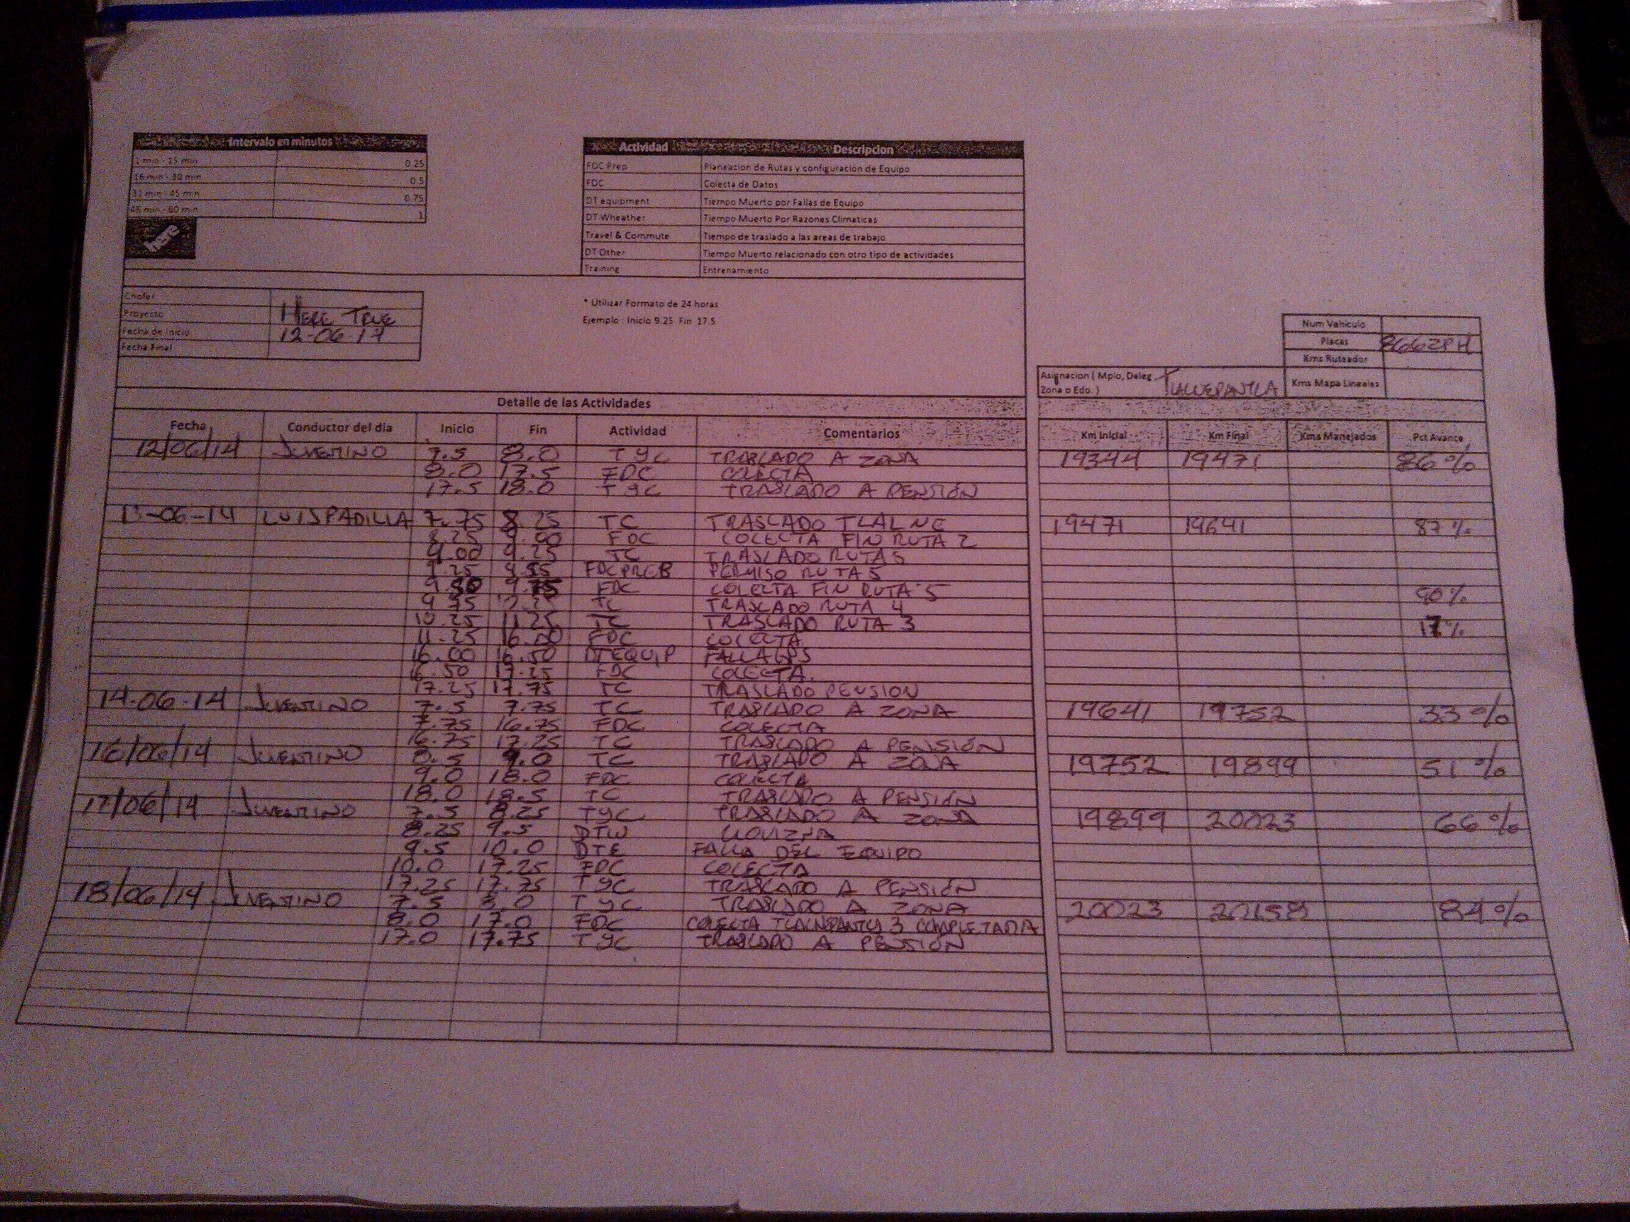 Intervalo en minutos
1 min - 15 min 0.25
16 min - 30 min 0.5
31 min - 45 min 0.75
46 min - 60 min 1
here
Actividad Descripcion
FDC Prep Planeacion de Rutas y configuracion de Equipo
FDC Colecta de Datos
DT equipment Tiempo Muerto por Fallas de Equipo
DT Wheather Tiempo Muerto Por Razones Climaticas
Travel & Commute Tiempo de traslado a las areas de trabajo
DT Other Tiempo Muerto relacionado con otro tipo de actividades
Training Entrenamiento
Chofer
Proyecto HERE TRUE
Fecha de Inicio 12-06-17
Fecha Final
* Utilizar Formato de 24 horas
Ejemplo : Inicio 9.25 Fin 17.5
Num Vehiculo
Placas 866ZPH
Kms Ruteador
Kms Mapa Lineales
Asignacion ( Mpio, Deleg,
Zona o Edo. )
Detalle de las Actividades
Fecha Conductor del dia Inicio Fin Actividad Comentarios Km Inicial Km Final Kms Manejados Pct Avance
12/06/14 JUVENTINO 7.5 8.0 TYC TRASLADO A ZONA 19344 19471 86%
8.0 17.5 FDC COLECTA
17.5 18.0 TYC TRASLADO A PENSIÓN
13-06-14 LUIS PADILLA 7.75 8.25 TC TRASLADO TLALNE 19471 19641 87%
8.25 9.00 FDC COLECTA FIN RUTA 2
9.00 9.25 TC TRASLADO RUTA 5
9.25 FDC PREP PERMISO RUTA 5
9.50 9.75 FDC COLECTA FIN RUTA 5 90%
9.75 TC TRASLADO RUTA 4
10.25 11.25 TC TRASLADO RUTA 3 17%
11.25 16.00 FDC COLECTA
16.00 16.50 DT EQUIP FALLA GPS
16.50 17.25 FDC COLECTA
17.25 17.75 TC TRASLADO PENSION
14-06-14 JUVENTINO 7.5 7.75 TC TRASLADO A ZONA 19641 19752 33%
7.75 16.75 FDC COLECTA
16.75 17.25 TC TRASLADO A PENSIÓN
16/06/14 JUVENTINO 8.5 9.0 TC TRASLADO A ZONA 19752 19899 51%
9.0 18.0 FDC COLECTA
18.0 18.5 TC TRASLADO A PENSIÓN
17/06/14 JUVENTINO 7.5 8.25 TYC TRASLADO A ZONA 19899 20023 66%
8.25 9.5 DTW LLOVIZNA
9.5 10.0 DTE FALLA DEL EQUIPO
10.0 17.25 FDC COLECTA
17.25 17.75 TYC TRASLADO A PENSIÓN
18/06/14 JUVENTINO 7.5 8.0 TYC TRASLADO A ZONA 20023 20158 84%
8.0 17.0 FDC COLECTA 3 COMPLETADA
17.0 17.75 TYC TRASLADO A PENSIÓN